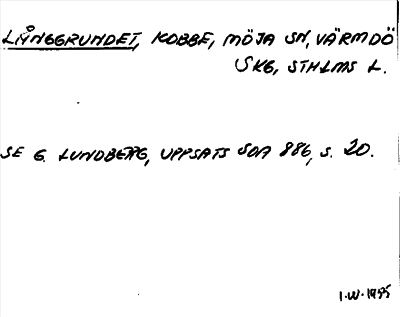 LÅNGGRUNDET, KOBBE, MÖJA SN, VÄRMDÖ
SKG, STHLMS L.
SE G. LUNDBERG, UPPSATS SOA 886, S. 20.
I.W. 1995